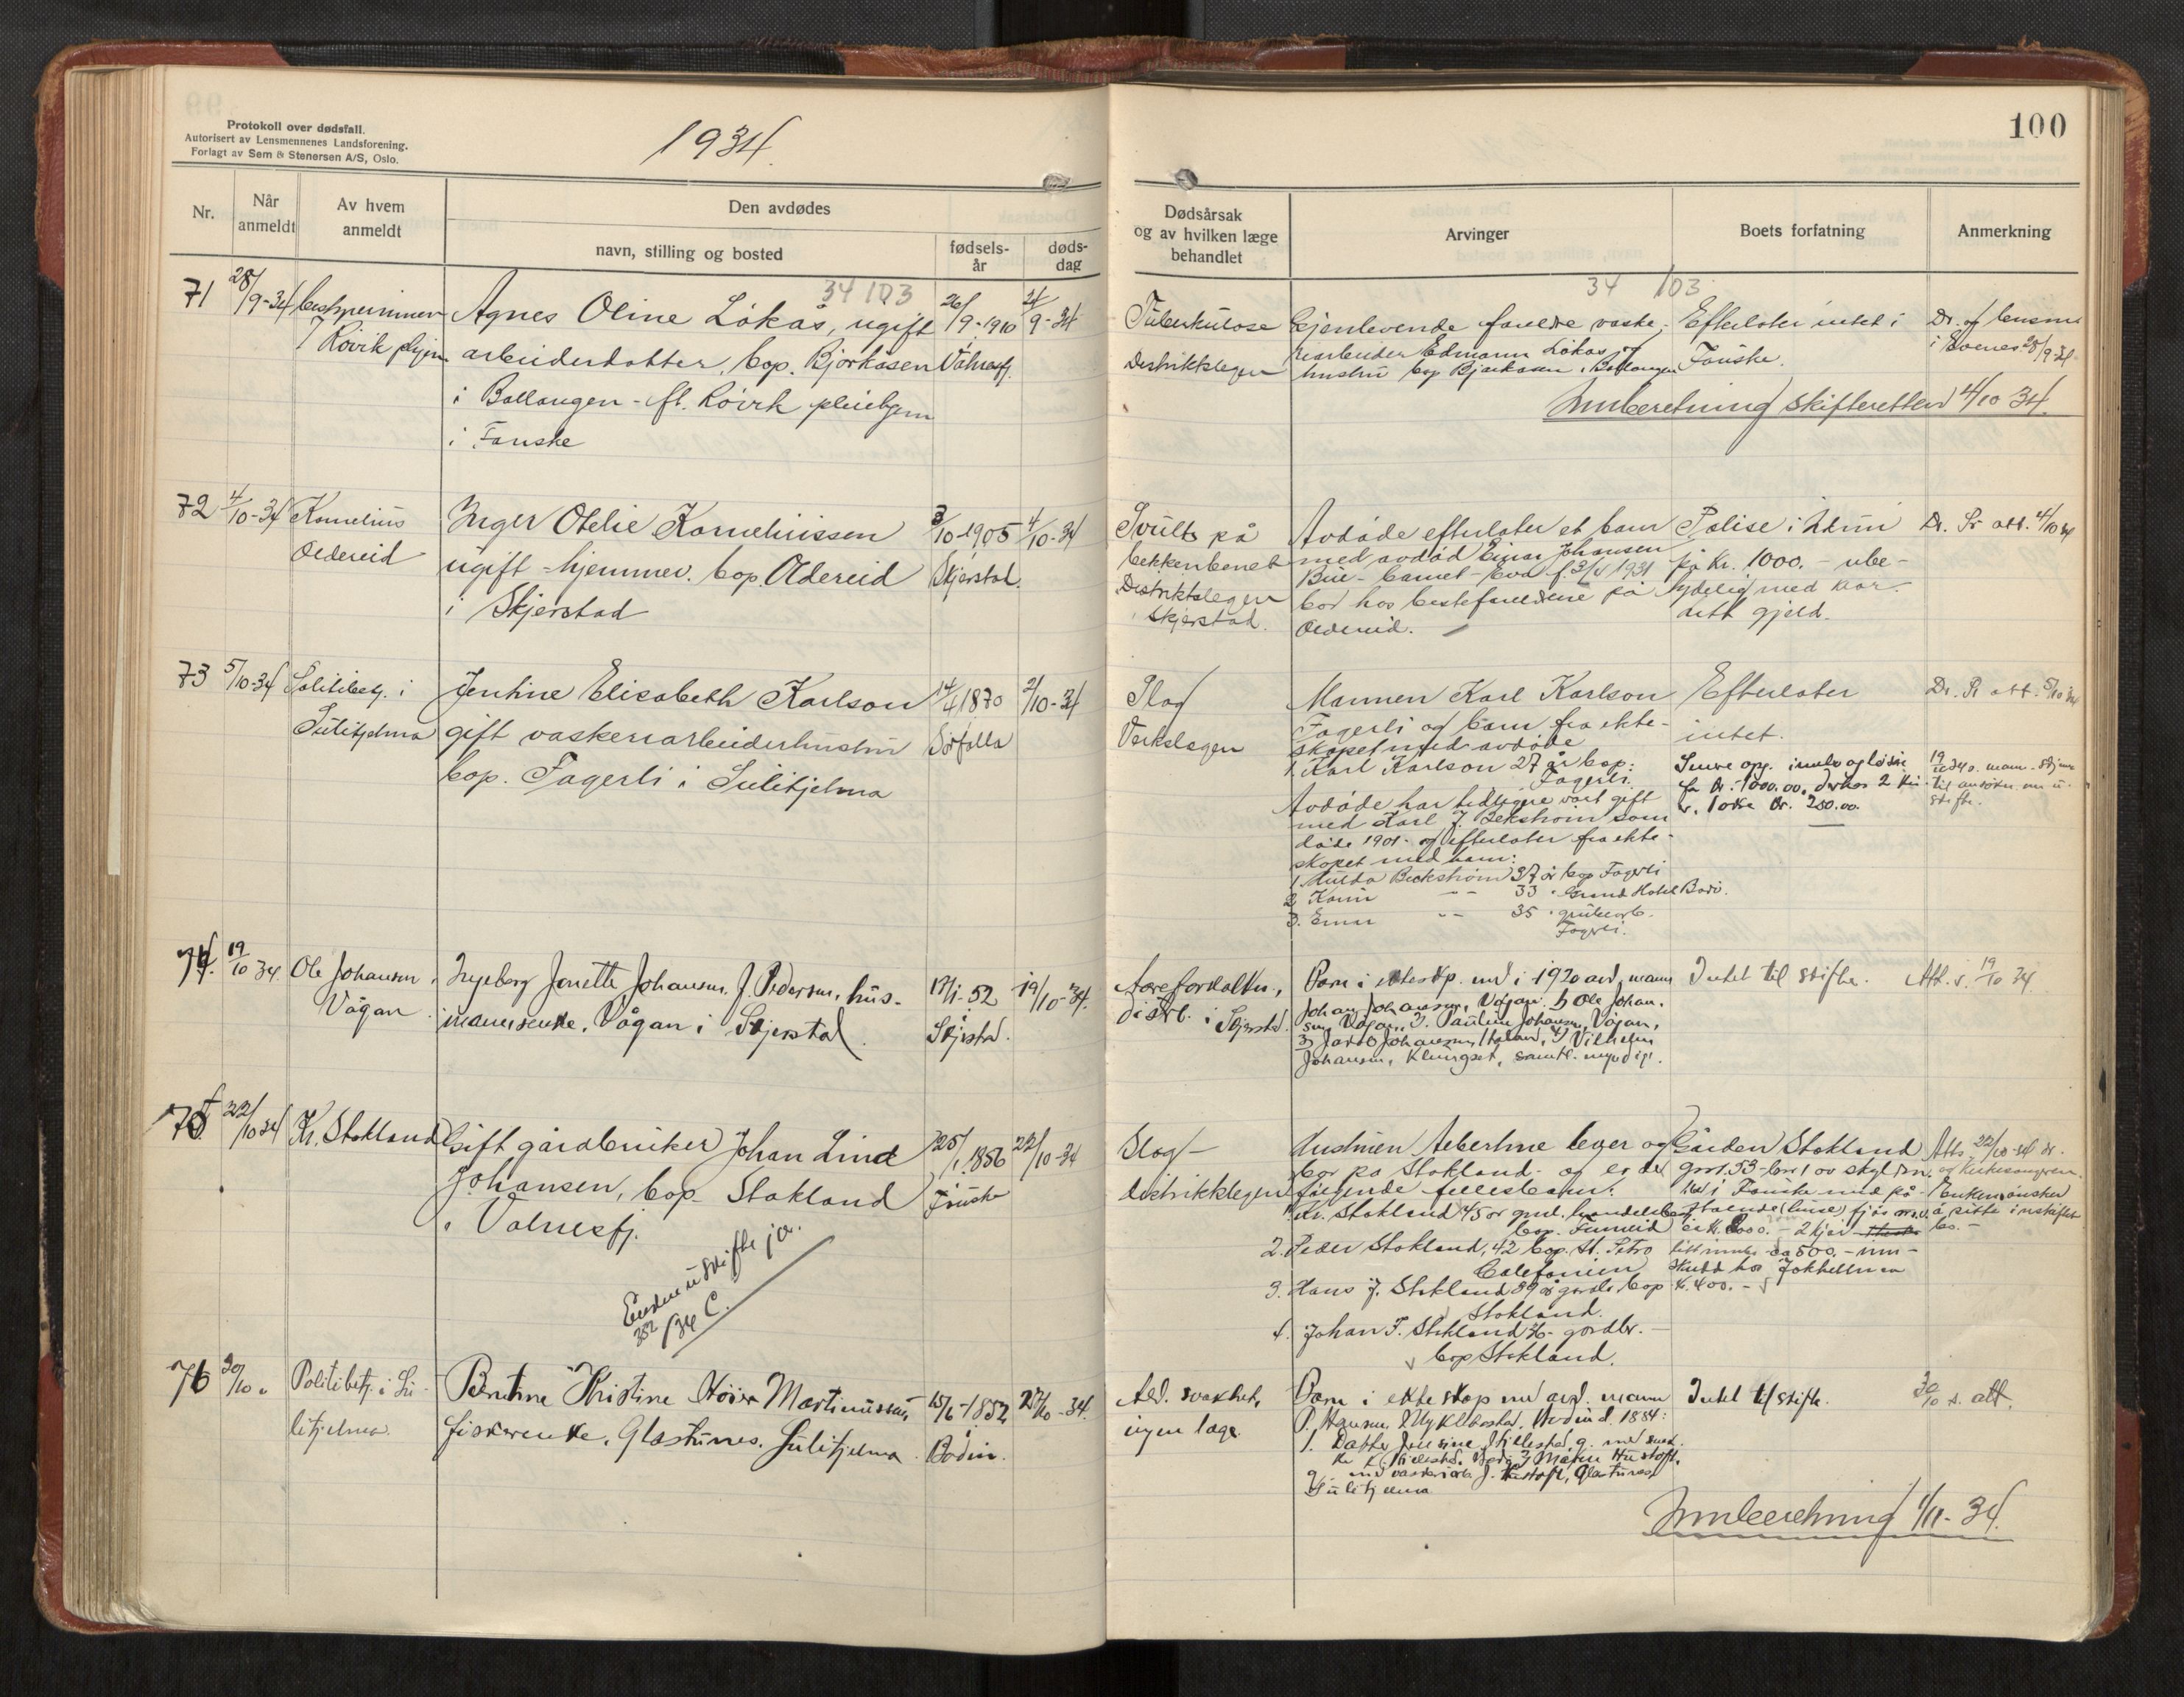 Protokoll over dødsfall.
Autorisert av Lensmennenes Landsforening.
Forlagt av Sem & Stenersen A/S, Oslo.
1934.
Nr.
Når anmeldt
Av hvem anmeldt
Den avdødes
navn, stilling og bosted
fødsels-år
døds-dag
34/103
71
28/9-34
Bestyrerinnen
Røvik pleiehjem
Agnes Oline Løkås, ugift
arbeiderdatter, bop. Bjørkåsen
i Ballangen - ft. Røvik pleiehjem
i Fauske
26/9-1910
9-34
72
4/10-34
Kornelius
Oldereid
Inger Otelie Korneliussen
ugift - hjemmev. bop. Oldereid
i Skjerstad
3/10-1905
Skjerstad.
4/10-34
73
5/10-34
Politibetj. i
Sulitjelma
Jentine Elisabeth Karlson
gift vaskeriarbeiderhustru
bop. Fagerli i Sulitjelma
14/4 1870
Sørfolla
2/10-34
74.
19/10 34.
Ole Johansen,
Vågan
Ingeborg Jonette Johansen, f. Pedersen, hus-
mannsenke, Vågan i Skjerstad.
17/1-52
Skjerstad.
19/10-34.
75
22/10 34
Kr. Stokland
Gift gårdbruker Johan Lind
Johansen, bop. Stokland
i Valnesfj.
25/1 1856
Fauske
22/10-34
Enken uskifte ja.
352/34 C.
76
30/10 "
Politibetj. i Su-
litjelma.
Berntine Kristine Høier Martinussen,
fiskerenke, Glastunes, Sulitjelma.
15/6-1852
Bodin.
27/10-34.
100
Dødsårsak og av hvilken læge behandlet
Arvinger
Boets forfatning
Anmerkning
34/103
Tuberkulose
Distriktslegen
Gjenlevende foreldre vaske-
riarbeider Edmann Løkås og
hustru bop Bjørkåsen i Ballangen
Efterlater intet i
Fauske.
Dr. og lensm
i Evenes 28/9-34
Innberetning skifteretten 4/10 34.
Svulst på
bekkenbenet
Distriktslegen
i Skjerstad.
Avdøde efterlater et barn
med avdød Einar Johansen
Bue - barnet - Eva f. 3/4 1931
bor hos besteforeldrene på
Oldereid.
Polise i Idun
på kr. 1000. - ube-
tydelig med kor-
dett gjeld.
Dr. Sr. att. 4/10 34
Slag
Verkslegen
Mannen Karl Karlson
Fagerli og barn fra ekte-
skapet med avdøde
1. Karl Karlson 27 år bop:
Fagerli.
Avdøde har tidligere vært gift
med Karl J. Bekstrøm som
døde 1901 - og efterlater fra ekte-
skapet med ham:
1. Hulda Beckstrøm 37 år bop Fagerli
2. Karin " " 33 " Grand Hotel Bodø.
3. Einar " " 35 " grubearb.
Fagerli.
Efterlater
intet.
Senere opg. innbo og løsøre
for kr. 1000.00, derhos 2 kür
v. 1 okse kr. 250.00.
Dr. Sr. att. 5/10 34
Åreforkalkn.,
distrl. i Skjerstad.
Barn i ekteskp. med i 1920 avd. mann
Johan Johansen, Vågan. 1) Ole Johan-
sen, Vågan, 2. Pauline Johansen, Vågan,
3) Jakob Johansen, 4) Vilhelm
Johansen, Klungset, samtl. myndige.
Intet til skifte.
Att. s. 19/10 34.
Slag -
Distriktslegen
Hustruen Albertine lever og
bor på Stokland - og er der
følgende fellesbarn:
1. Kr. Stokland 45 år gml. handelsbetj.
bop. Finneid
2. Peder Stokland, 42 bop. St. Petro
Calefonien
3. Hans J. Stokland 39 år gårdb. bop
Stokland.
4. Johan F. Stokland 36 - gårdbr. -
bop Stokland.
Gården Stokland
gnr. 53 - bnr 1 av skyld m.
i Fauske med på-
stående (huse) fjøs m.v.
er kr. 8000. - 2 kjør
litt innbo ca 500. - inn-
skudd hos Jokhelln ca
kr. 400. -
Att. 22/10-34 dr.
og kirkesangeren.
Enken ønsker
å sitte i uskiftet
bo. -
Ald. svakhet,
ingen læge.
Barn i ekteskap med avd. mann
P. Hansen, Myklebostad, Bodin d. 1884:
1. Datter Jensine Hillestad, g. med smed.
Kr. Hillestad, Bodø 2 Maren Hustoft,
g. med vaskeriarb. J. Hustoft, Glastunes,
Sulitjelma
Intet til skifte.
30/10 s. att.
Innberetning 1/11-34.